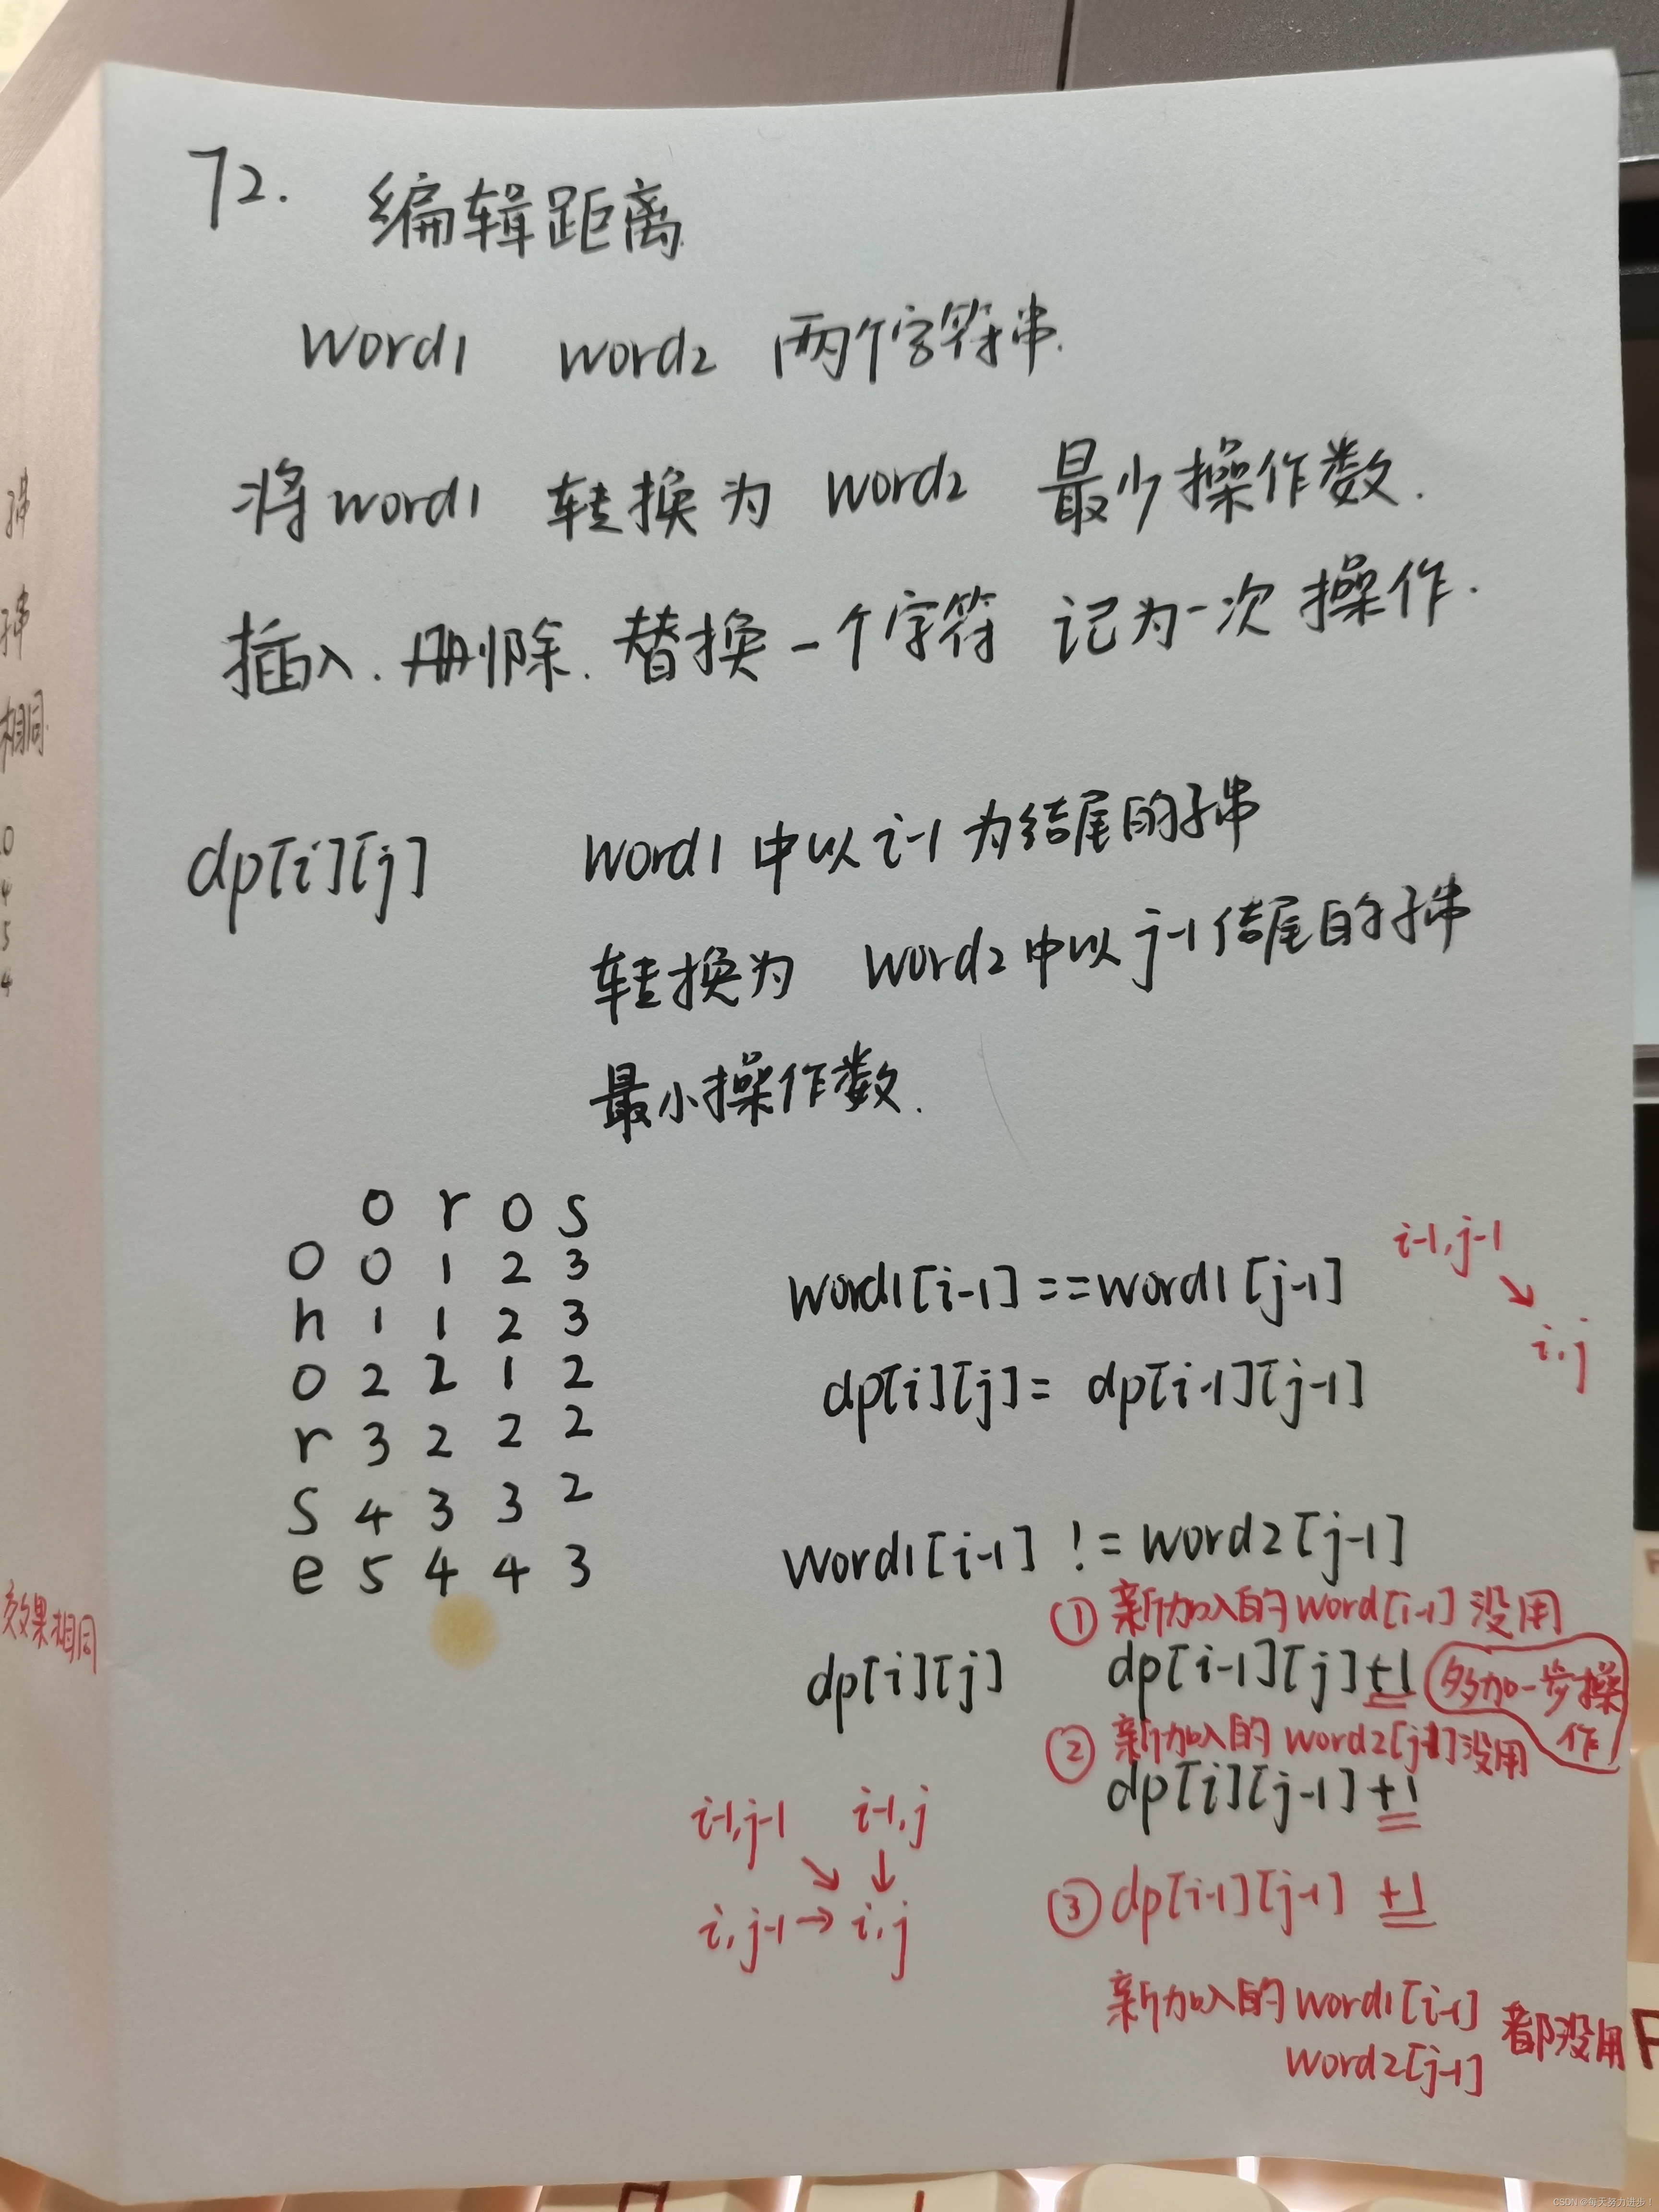 72. 编辑距离
word1 word2 两个字符串.
将word1 转换为 word2 最少操作数.
插入.删除.替换一个字符 记为一次操作.
dp[i][j] word1中以i-1为结尾的子串
转换为 word2中以j-1结尾的子串
最小操作数.
0 r o s
0 0 1 2 3
h 1 1 2 3
o 2 2 1 2
r 3 2 2 2
s 4 3 3 2
e 5 4 4 3
word1[i-1]==word1[j-1]
dp[i][j]= dp[i-1][j-1]
i-1,j-1
↘
i,j
word1[i-1] != word2[j-1]
①新加入的word[i-1]没用
dp[i][j] dp[i-1][j]+1 多加一步操
作
②新加入的word2[j-1]没用
dp[i][j-1]+1
③dp[i-1][j-1] +1
新加入的word1[i-1]
word2[j-1] 都没用
i-1,j-1 i-1,j
↘ ↓
i,j-1→i,j
串
串
相同.
0
4
5
4
效果相同
CSDN @每天努力进步!